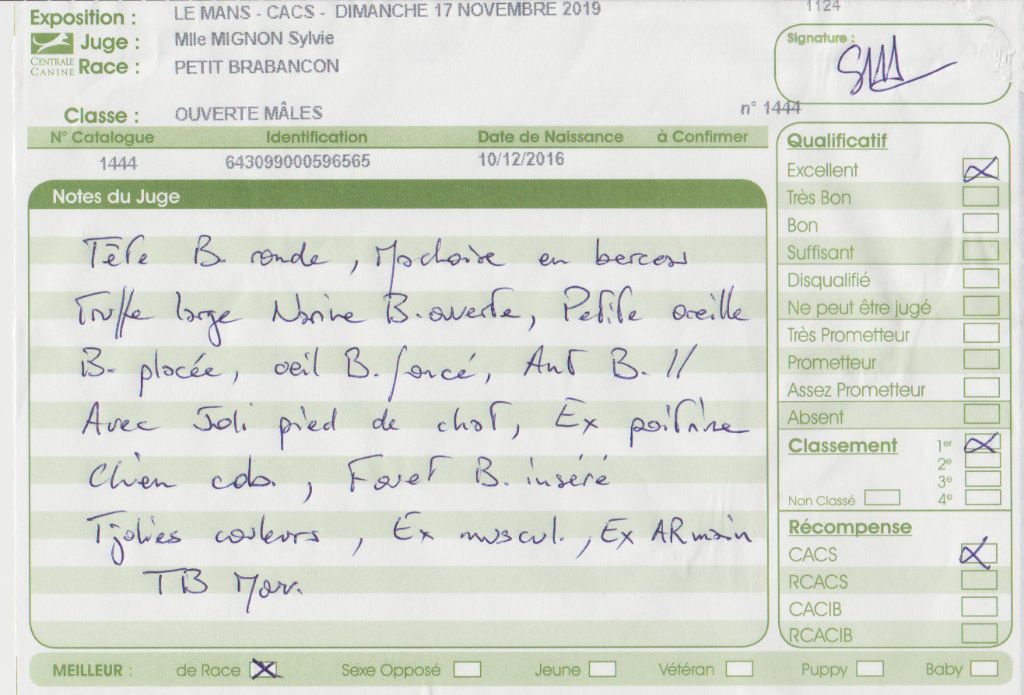 Exposition : LE MANS - CACS - DIMANCHE 17 NOVEMBRE 2019
1124
CENTRALE CANINE
Juge : Mlle MIGNON Sylvie
Race : PETIT BRABANCON
Signature :
Classe : OUVERTE MÂLES
n° 1444
N° Catalogue Identification Date de Naissance à Confirmer
1444 643099000596565 10/12/2016
Notes du Juge
Tête B. ronde, Machoire en berceau
Truffe large Narine B. ouverte, Petite oreille
B. placée, oeil B. foncé, Ant B. //
Avec Joli pied de chat, Ex poitrine
Chien cob., Fouet B. inséré
Tjolies couleurs, Ex muscul., Ex AR main
TB Mov.
Qualificatif
Excellent
Très Bon
Bon
Suffisant
Disqualifié
Ne peut être jugé
Très Prometteur
Prometteur
Assez Prometteur
Absent
Classement 1er
2e
3e
Non Classé 4e
Récompense
CACS
RCACS
CACIB
RCACIB
MEILLEUR : de Race Sexe Opposé Jeune Vétéran Puppy Baby